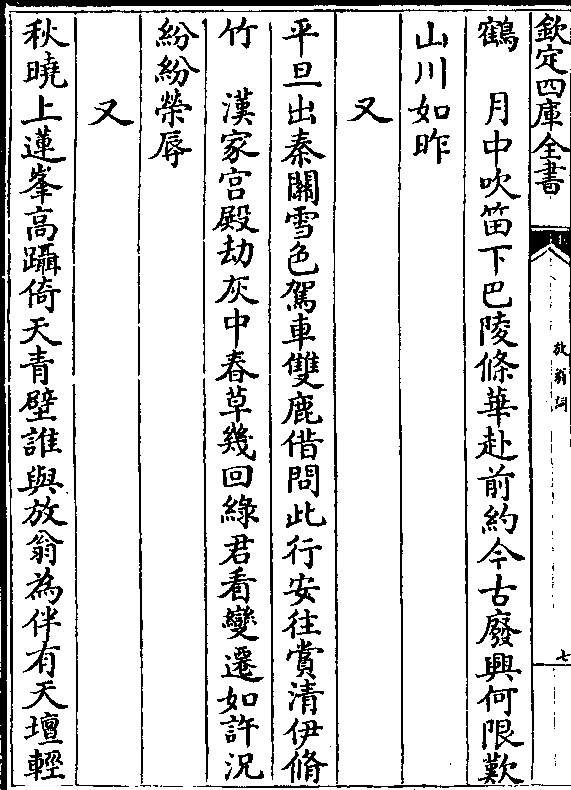 欽定四庫全書
放翁詞
七
鶴　月中吹笛下巴陵條華赴前約今古廢興何限歎
山川如昨
又
平旦出秦關雪色駕車雙鹿借問此行安往賞清伊脩
竹　漢家宫殿劫灰中春草幾回綠君看變遷如許況
紛紛榮辱
又
秋曉上蓮峯高躡倚天青壁誰與放翁為伴有天壇輕